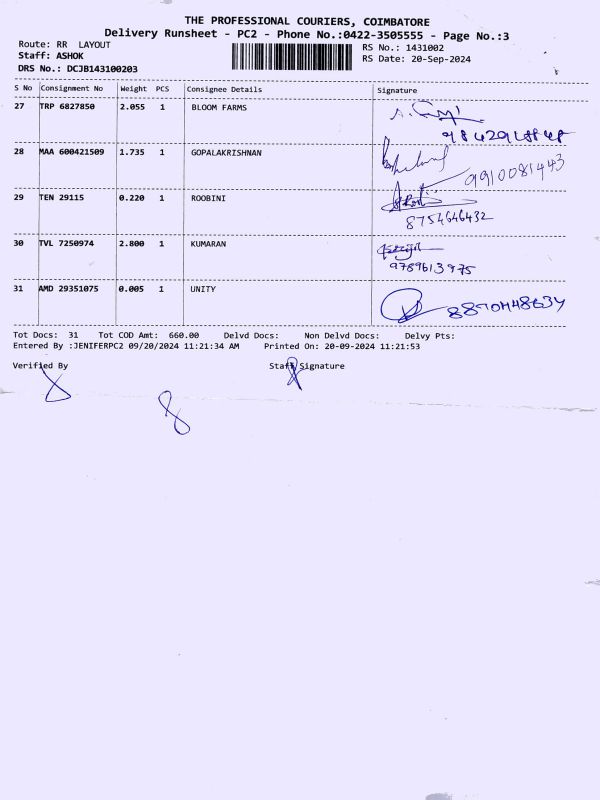 THE PROFESSIONAL COURIERS, COIMBATORE
Delivery Runsheet - PC2 - Phone No.:0422-3505555 - Page No.:3
Route: RR LAYOUT
RS No.: 1431002
Staff: ASHOK
RS Date: 20-Sep-2024
DRS No.: DCJB143100203
S No Consignment No Weight PCS Consignee Details Signature
27 TRP 6827850 2.055 1 BLOOM FARMS
28 MAA 600421509 1.735 1 GOPALAKRISHNAN
9910081443
29 TEN 29115 0.220 1 ROOBINI
8754646432
30 TVL 7250974 2.800 1 KUMARAN
9789613975
31 AMD 29351075 0.005 1 UNITY
Tot Docs: 31 Tot COD Amt: 660.00 Delvd Docs: Non Delvd Docs: Delvy Pts:
Entered By :JENIFERPC2 09/20/2024 11:21:34 AM Printed On: 20-09-2024 11:21:53
Verified By Staff Signature